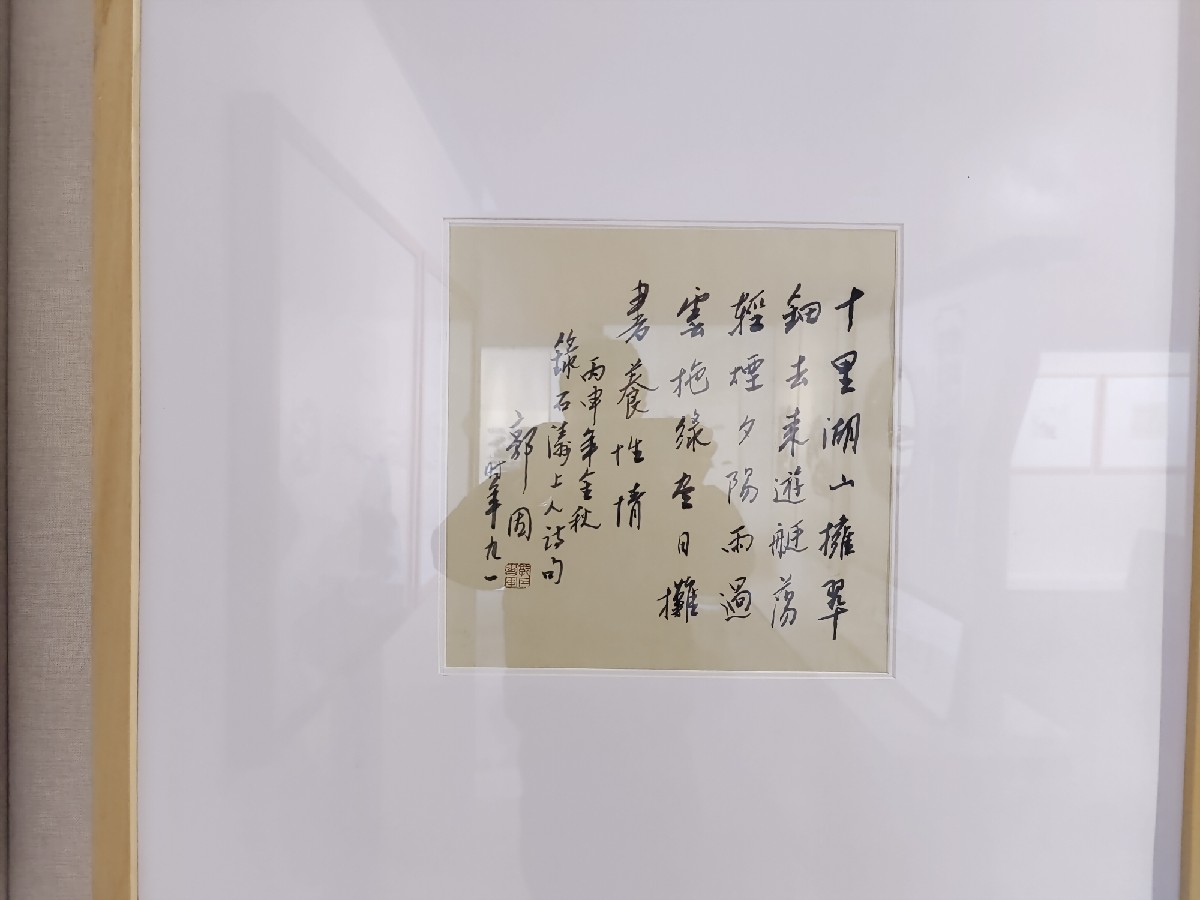 十里湖山擁翠
鈿去來遊艇蕩
輕煙夕陽雨過
雲拖綠盡日攤
書養性情
丙申年金秋
錄石濤上人詩句
郭因
时年九一